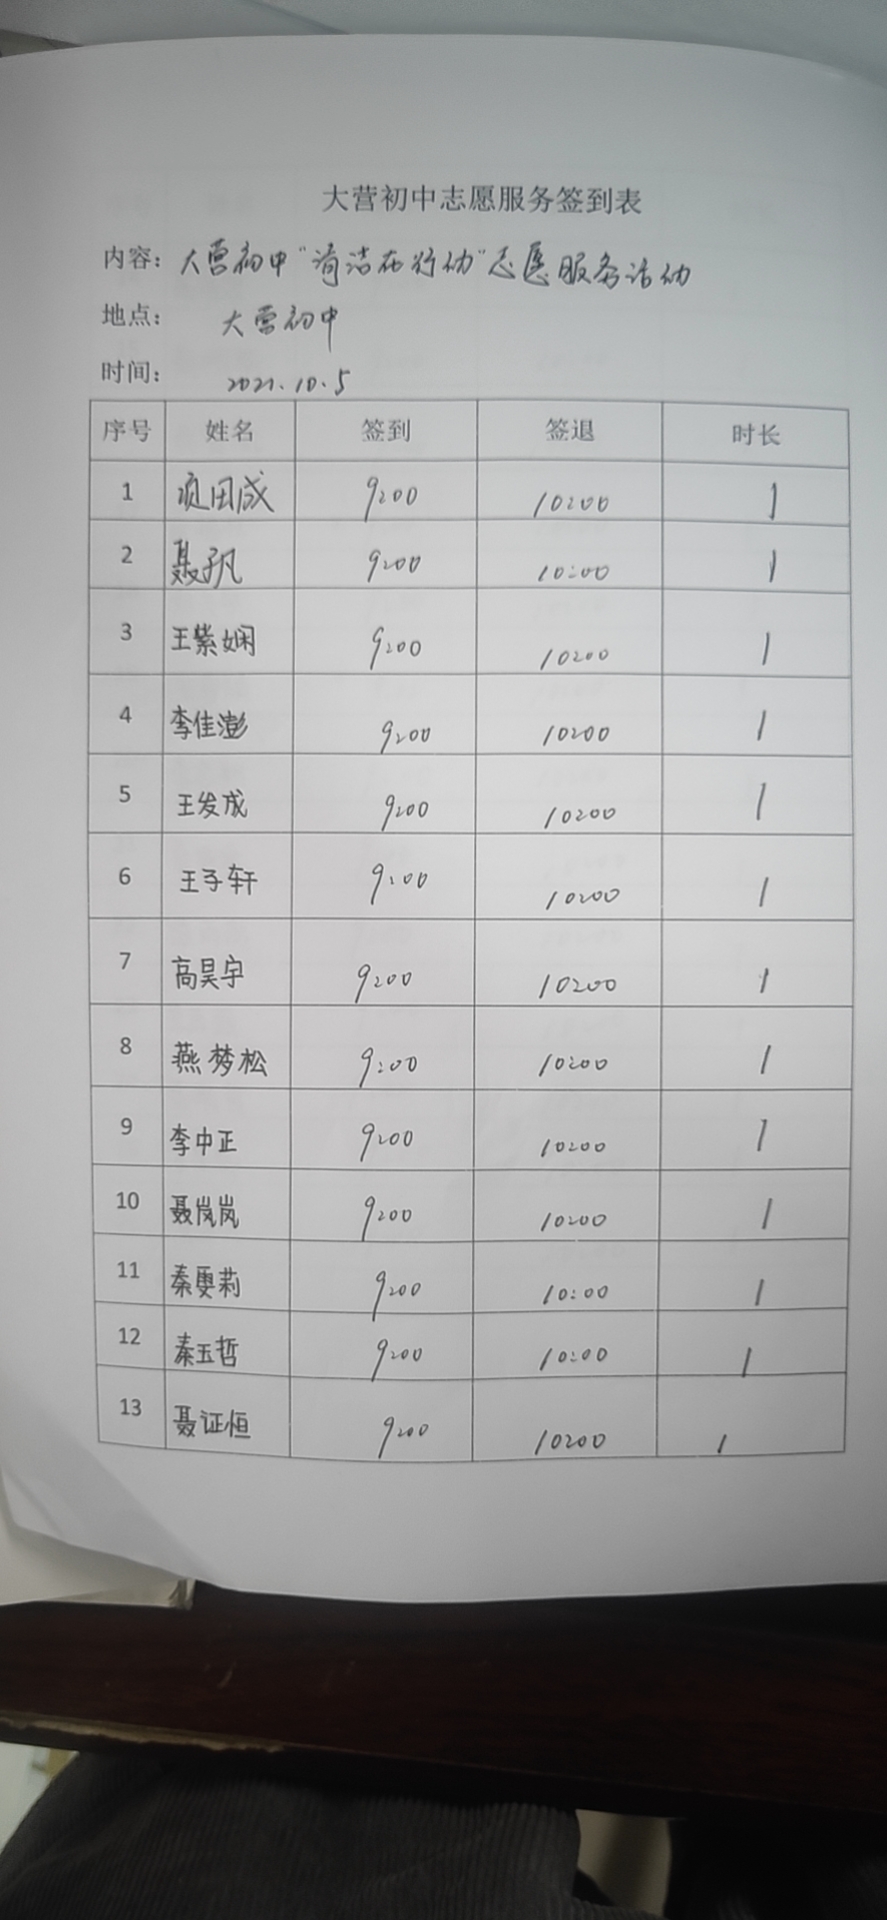 大营初中志愿服务签到表
内容：大营初中"清洁在行动"志愿服务活动
地点：大营初中
时间：2021.10.5
序号 姓名 签到 签退 时长
1 项田成 9:00 10:00 1
2 聂子凡 9:00 10:00 1
3 王紫娴 9:00 10:00 1
4 李佳澎 9:00 10:00 1
5 王发成 9:00 10:00 1
6 王子轩 9:00 10:00 1
7 高昊宇 9:00 10:00 1
8 燕梦松 9:00 10:00 1
9 李中正 9:00 10:00 1
10 聂岚岚 9:00 10:00 1
11 秦更莉 9:00 10:00 1
12 秦玉哲 9:00 10:00 1
13 聂证恒 9:00 10:00 1